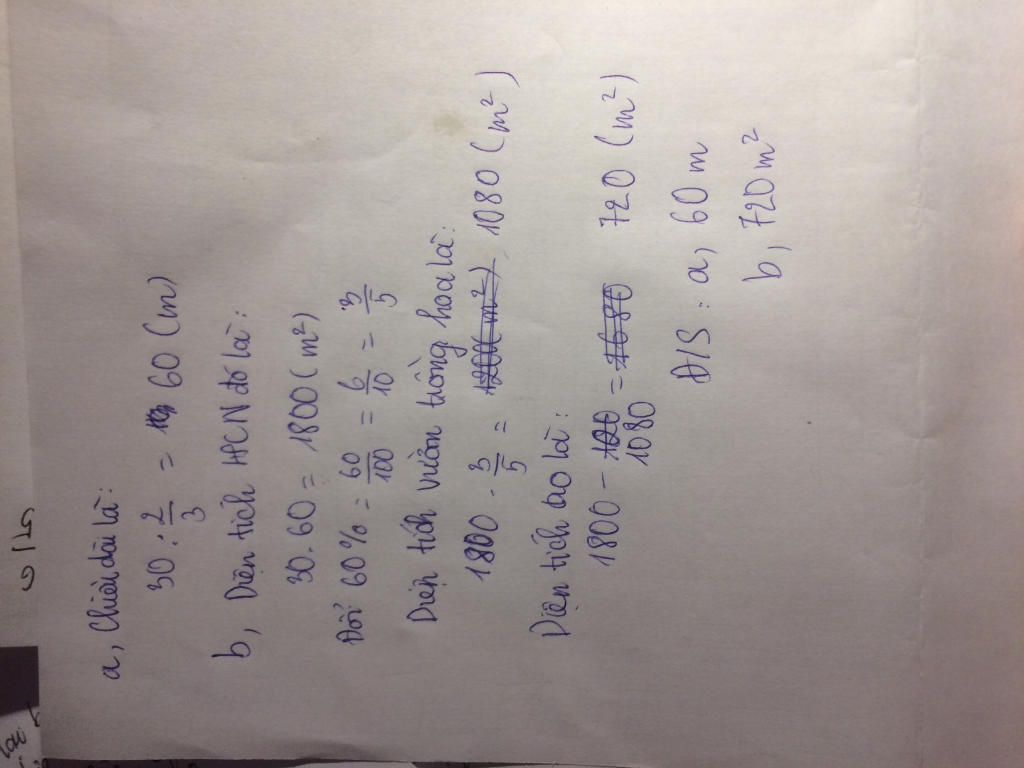 a, Chiều dài là:
30 : 2/3 = 60 (m)
b, Diện tích HCN đó là:
30.60 = 1800 (m²)
Đổi 60% = 60/100 = 6/10 = 3/5
Diện tích vườn trồng hoa là:
1800 . 3/5 = 1080 (m²)
Diện tích ao là:
1800 - 1080 = 720 (m²)
Đ/S : a, 60 m
b, 720 m²